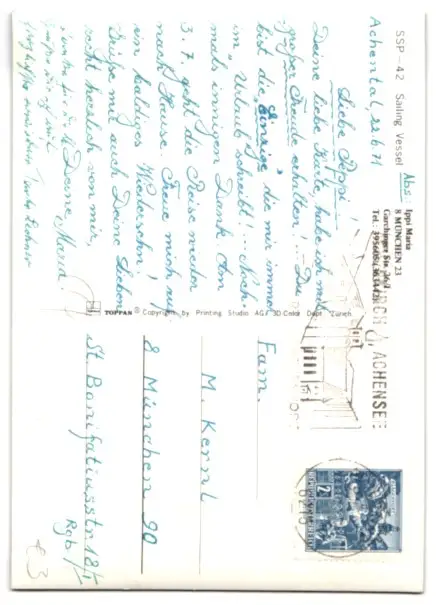 SSP-42 Sailing Vessel
Abs:
Ippi Maria
8 MÜNCHEN 23
Tel.
Achental, 22.6.71
Liebe Peppi!
Deine liebe Karte habe ich mit
großer Freude erhalten! - Du
bist die Einzige, die mir immer
im Urlaub schreibt!... Noch-
mals innigen Dank. Am
3.7. geht die Reise wieder
nach Hause. Freue mich auf
ein baldiges Wiedersehn!
Grüße mit auch Deine Lieben
recht herzlich von mir,
Deine Maria.
TOPPAN ® Copyright by Printing Studio AG / 3D-Color Dept. Zürich
ACHENSEE
Fam.
M. Kernl
8 München 90
St. Bonifatiusstr. 18/I
Rgb.
REPUBLIK ÖSTERREICH
2
6215
€3